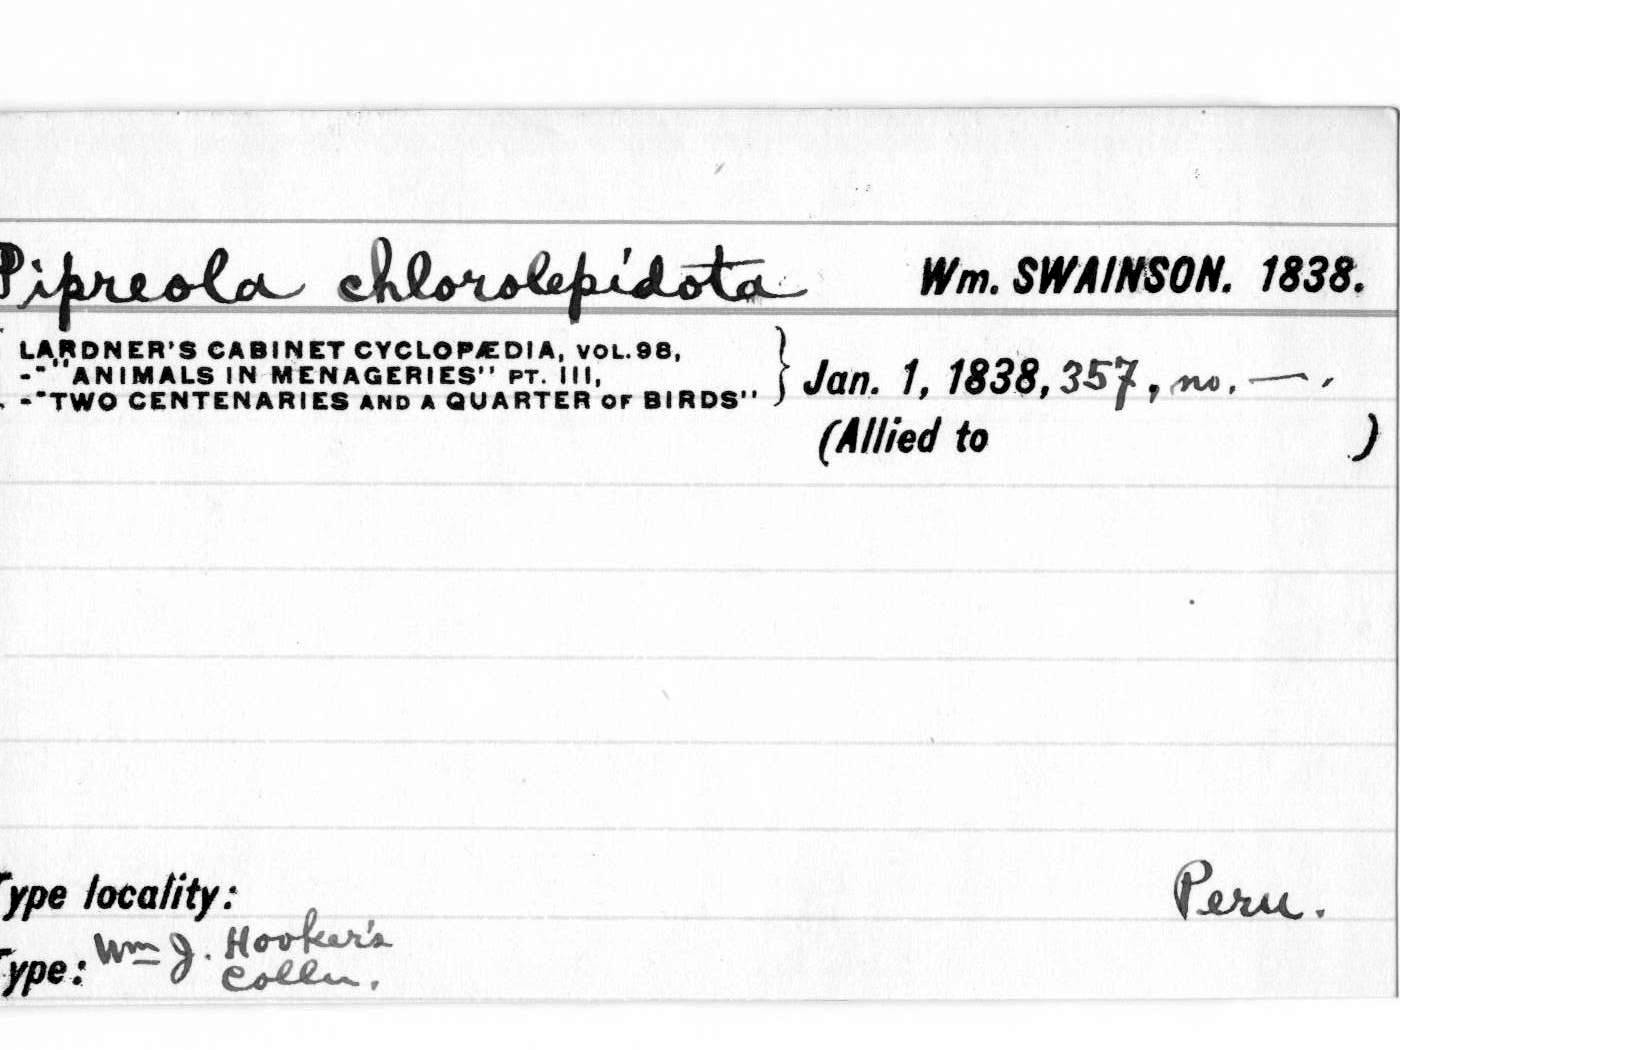 Pipreola chlorolepidota Wm. SWAINSON. 1838.
LARDNER'S CABINET CYCLOPÆDIA, VOL. 98,
-"ANIMALS IN MENAGERIES" PT. III,
-"TWO CENTENARIES AND A QUARTER OF BIRDS"
Jan. 1, 1838, 357, no. —.
(Allied to )
Type locality: Peru.
Type: Wm J. Hooker's
Colln.